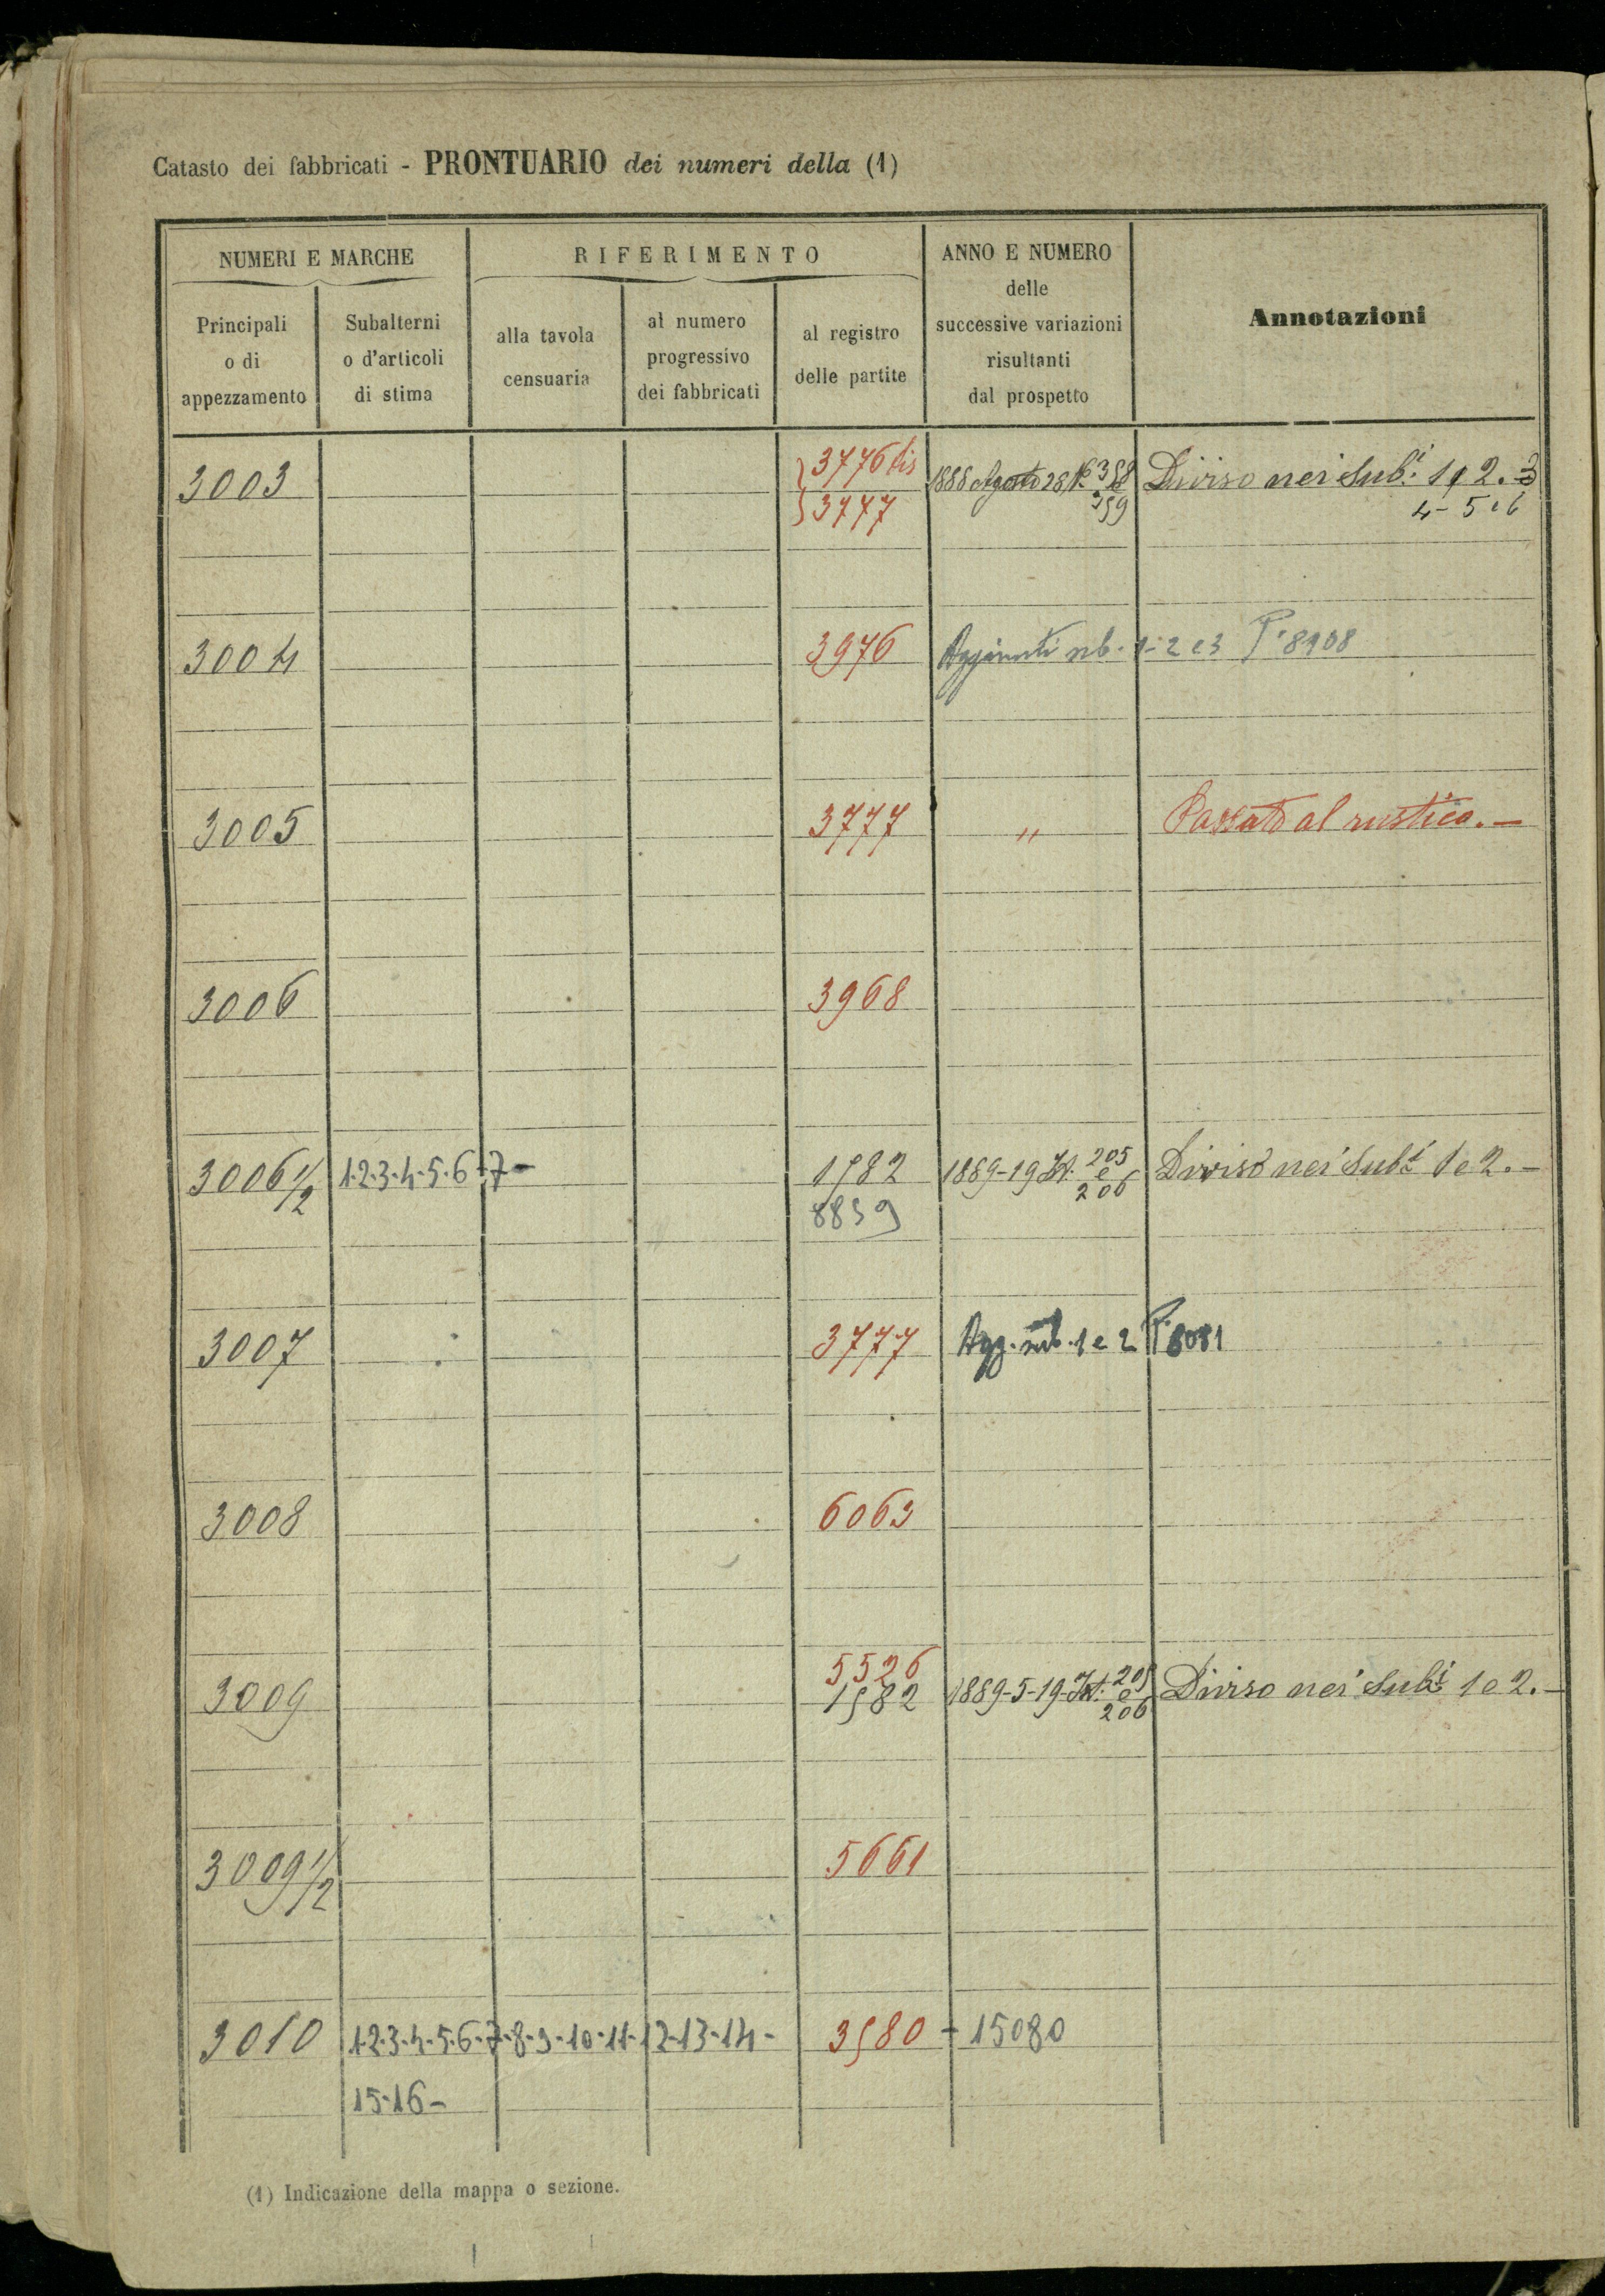 Catasto dei fabbricati - PRONTUARIO dei numeri della (1)
NUMERI E MARCHE
RIFERIMENTO
ANNO E NUMERO
delle
successive variazioni
risultanti
dal prospetto
Annotazioni
Principali
o di
appezzamento
Subalterni
o d'articoli
di stima
alla tavola
censuaria
al numero
progressivo
dei fabbricati
al registro
delle partite
3003 3776 bis 1888 Agosto 28 N. 358 Diviso nei Sub.i 1, 2. 3
3777 359 4- 5 e 6
3004 3976 Aggiunti sub. 1-2 e 3 P. 8908
3005 3777 " Passato al rustico. -
3006 3968
3006 1/2 1-2-3-4-5-6-7- 1582 1889-19 205 e 206 Diviso nei Sub.i 1 e 2. -
8859
3007 3777 Agg. sub. 1 e 2 P. 8081
3008 6063
5526
3009 1582 1889-5-19 205 e 206 Diviso nei Sub.i 1 e 2. -
3009 1/2 5661
3010 1-2-3-4-5-6-7-8-9-10-11-12-13-14- 3580 - 15080
15-16-
(1) Indicazione della mappa o sezione.